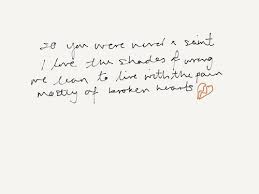 So you were never a saint
I love the shades of wrong
we lean to live with the pain
mostly of broken hearts